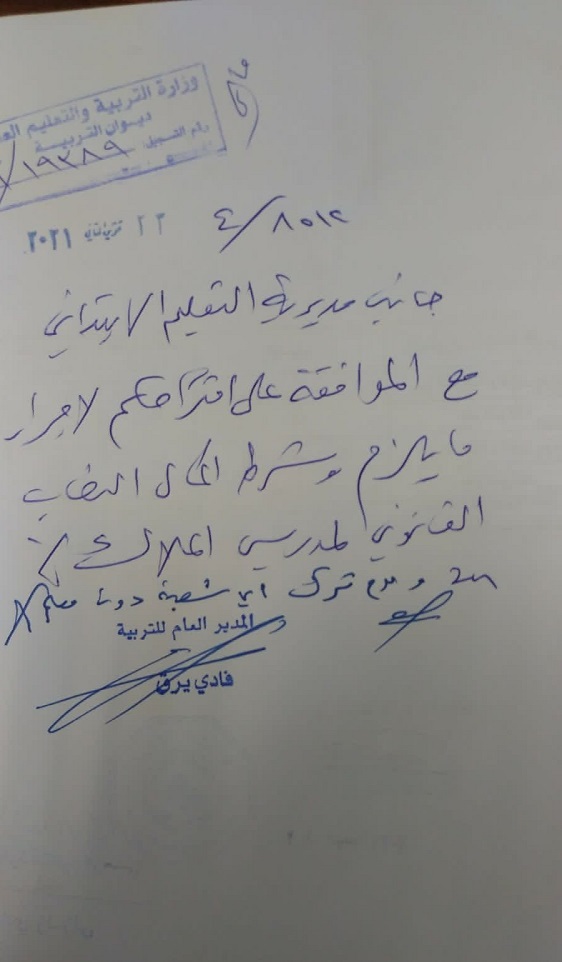 وزارة التربية والتعليم الع
ديوان التربية
رقم التسجيل: ١٩٣٨٩/
٢٢ تشرين الثاني ٢٠٢١
٤/٨٥١٢
جانب مديرية التعليم الابتدائي
مع الموافقة على اقتراحكم لاجراء
ما يلزم وشرط اكمال النصاب
القانوني لمدرسي الملاك
وعدم ترك اي شعبة دون معلم
المدير العام للتربية
فادي يرق